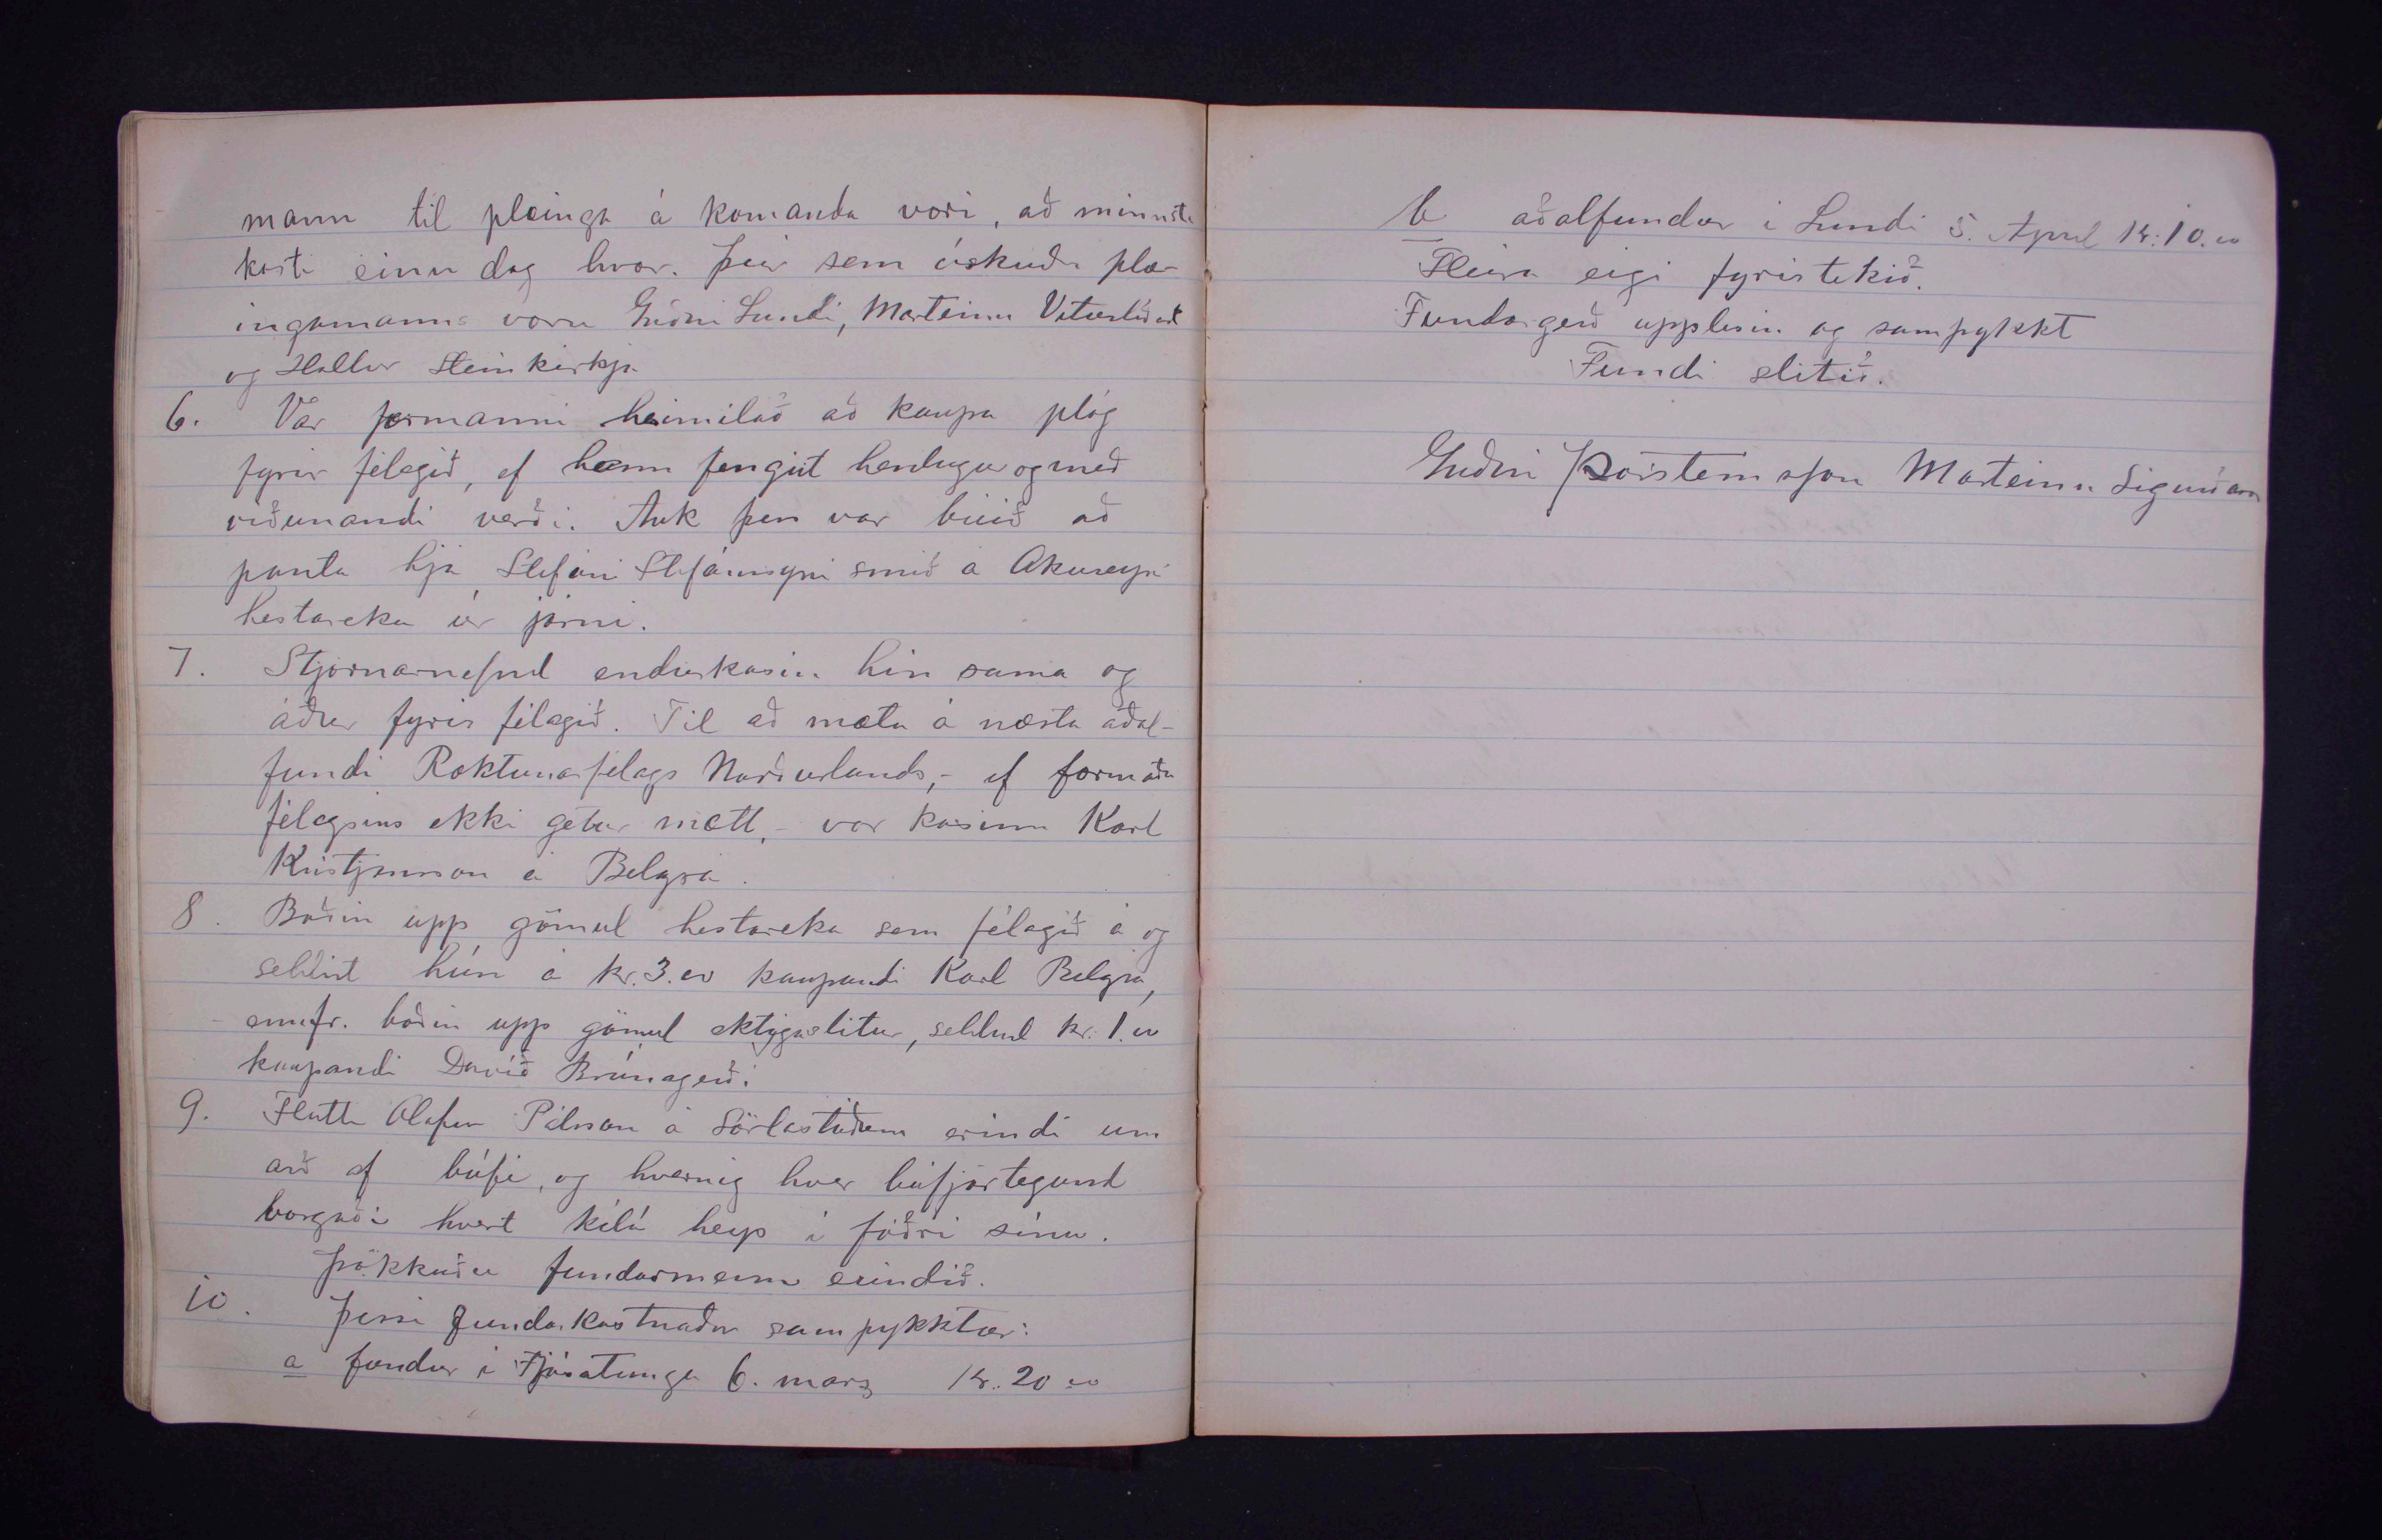 mann til plæinga á komanda vori, að minnsta
kosti einn dag hvor. Þeir sem óskuðu plæ-
ingamanns voru Guðni Lundi, Marteinn Veturliðast
og Hallur Steinkirkju
6. Var formanni heimilað að kaupa plóg
fyrir félagið, ef hann fengist hentugur og með
viðunandi verði. Auk þess var búið að
panta hjá Stefáni Stefánssyni smið á Akureyri
hestareku úr járni.
7. Stjórnarnefnd endurkosin hin sama og
áður fyrir félagið. Til að mæta á næsta aðal-
fundi Ræktunarfélags Norðurlands, - ef formaður
félagsins ekki getur mætt, - var kosinn Karl
Kristjánsson á Belgsá.
8. Boðin upp gömul hestareka sem félagið á og
seldist hún á kr. 3.00 kaupandi Karl Belgsá,
ennfr. boðin upp gömul aktygjaslitur, seldust kr. 1.00
kaupandi Davíð Brúnagerði
9. Flutti Olafur Pálsson á Sörlastöðum erindi um
arð af búfé, og hvernig hver búfjártegund
borgaði hvert kíló heys í fóðri sínu.
Þökkuðu fundarmenn erindið.
10. Þessi fundarkostnaður samþykktur:
a fundur í Fjósatungu 6. marz kr. 20 00
b aðalfundur í Lundi 5. April kr. 10.00
Fleira eigi fyrirtekið.
Fundargerð upplesin og samþykkt
Fundi slitið.
Guðni Þorsteinsson Marteinn Sigurðsson